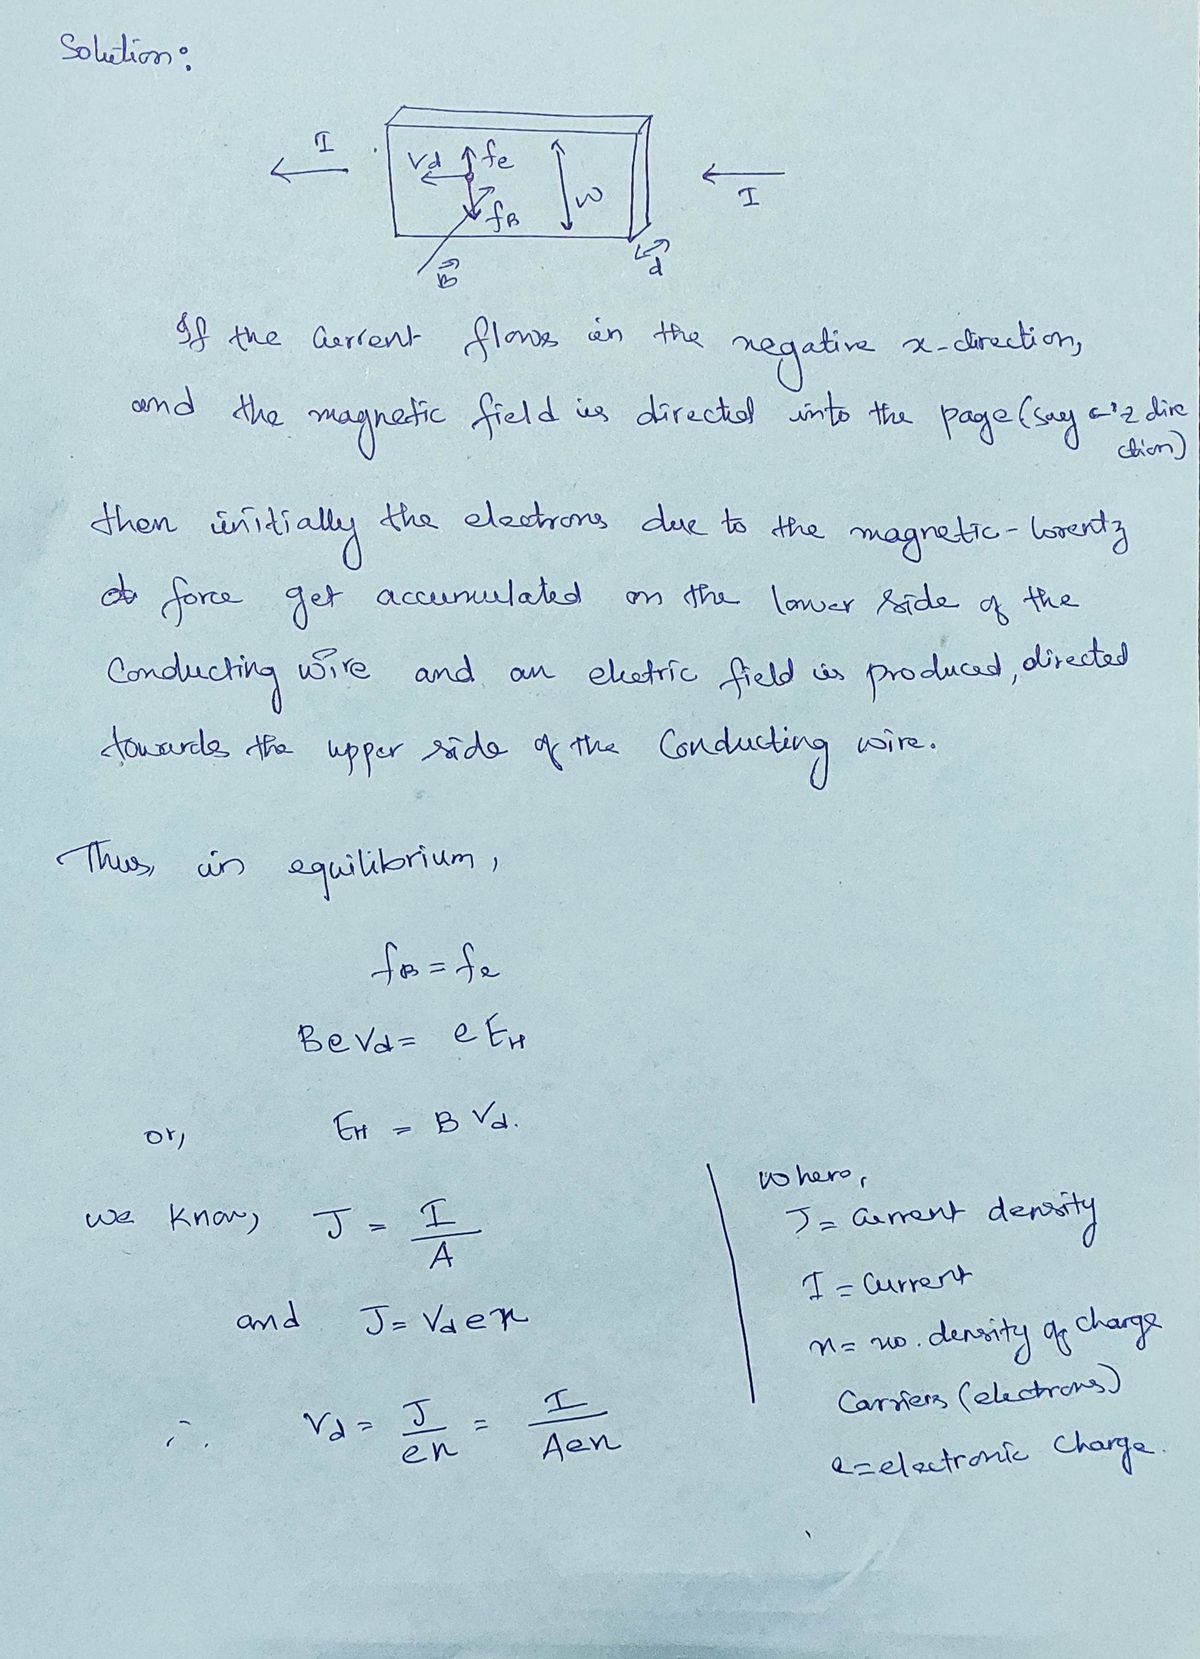 Solution:
I
Vd fe
W
I
fB
d
B
If the current flows in the negative x-direction,
and the magnetic field is directed into the page (say -z dire
ction)
then initially the electrons due to the magnetic-lorentz
force get accumulated on the lower side of the
Conducting wire and an electric field is produced, directed
towards the upper side of the Conducting wire.
Thus, in equilibrium,
fB = fe
BeVd = eEH
or, EH = B Vd.
where,
we know, J = I/A
J = current density
I = Current
and J = Vd e n
n = no. density of charge
Carriers (electrons)
∴ Vd = J/en = I/Aen
e = electronic charge.